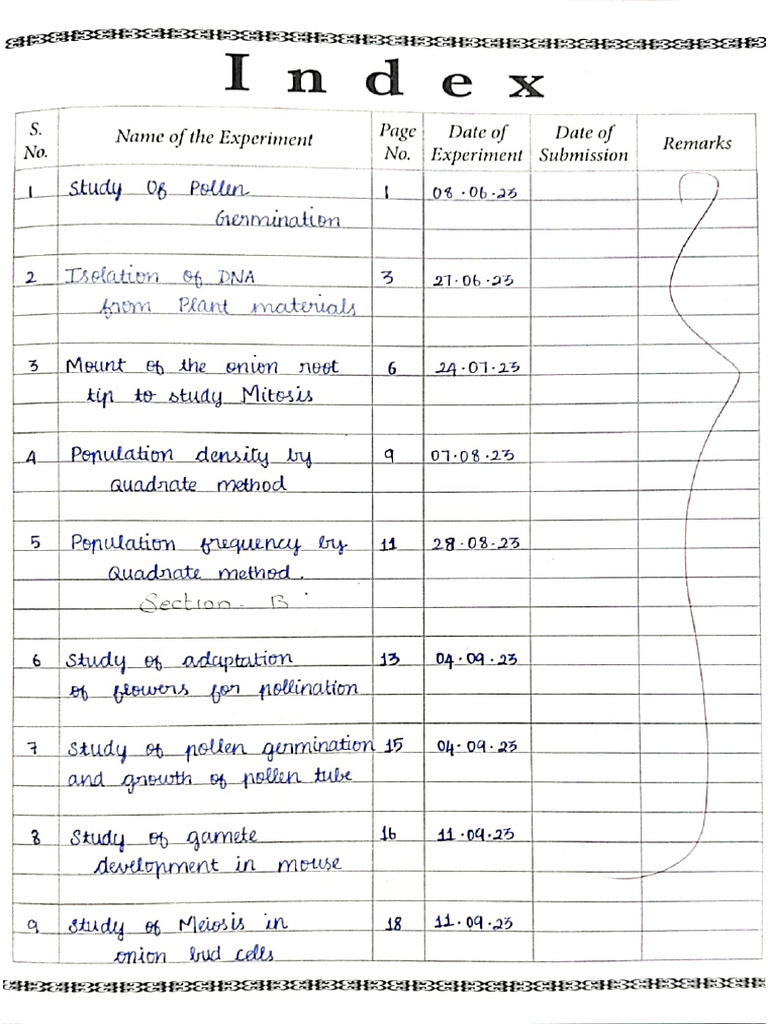 Index
S. No. Name of the Experiment Page No. Date of Experiment Date of Submission Remarks
1 Study Of Pollen 1 08.06.23
Germination
2 Isolation of DNA 3 27.06.23
from Plant materials
3 Mount of the onion root 6 24.07.23
tip to study Mitosis
4 Population density by 9 07.08.23
Quadrate method
5 Population frequency by 11 28.08.23
Quadrate method.
Section - B
6 Study of adaptation 13 04.09.23
of flowers for pollination
7 Study of pollen germination 15 04.09.23
and growth of pollen tube
8 Study of gamete 16 11.09.23
development in mouse
9 Study of Meiosis in 18 11.09.23
onion bud cells